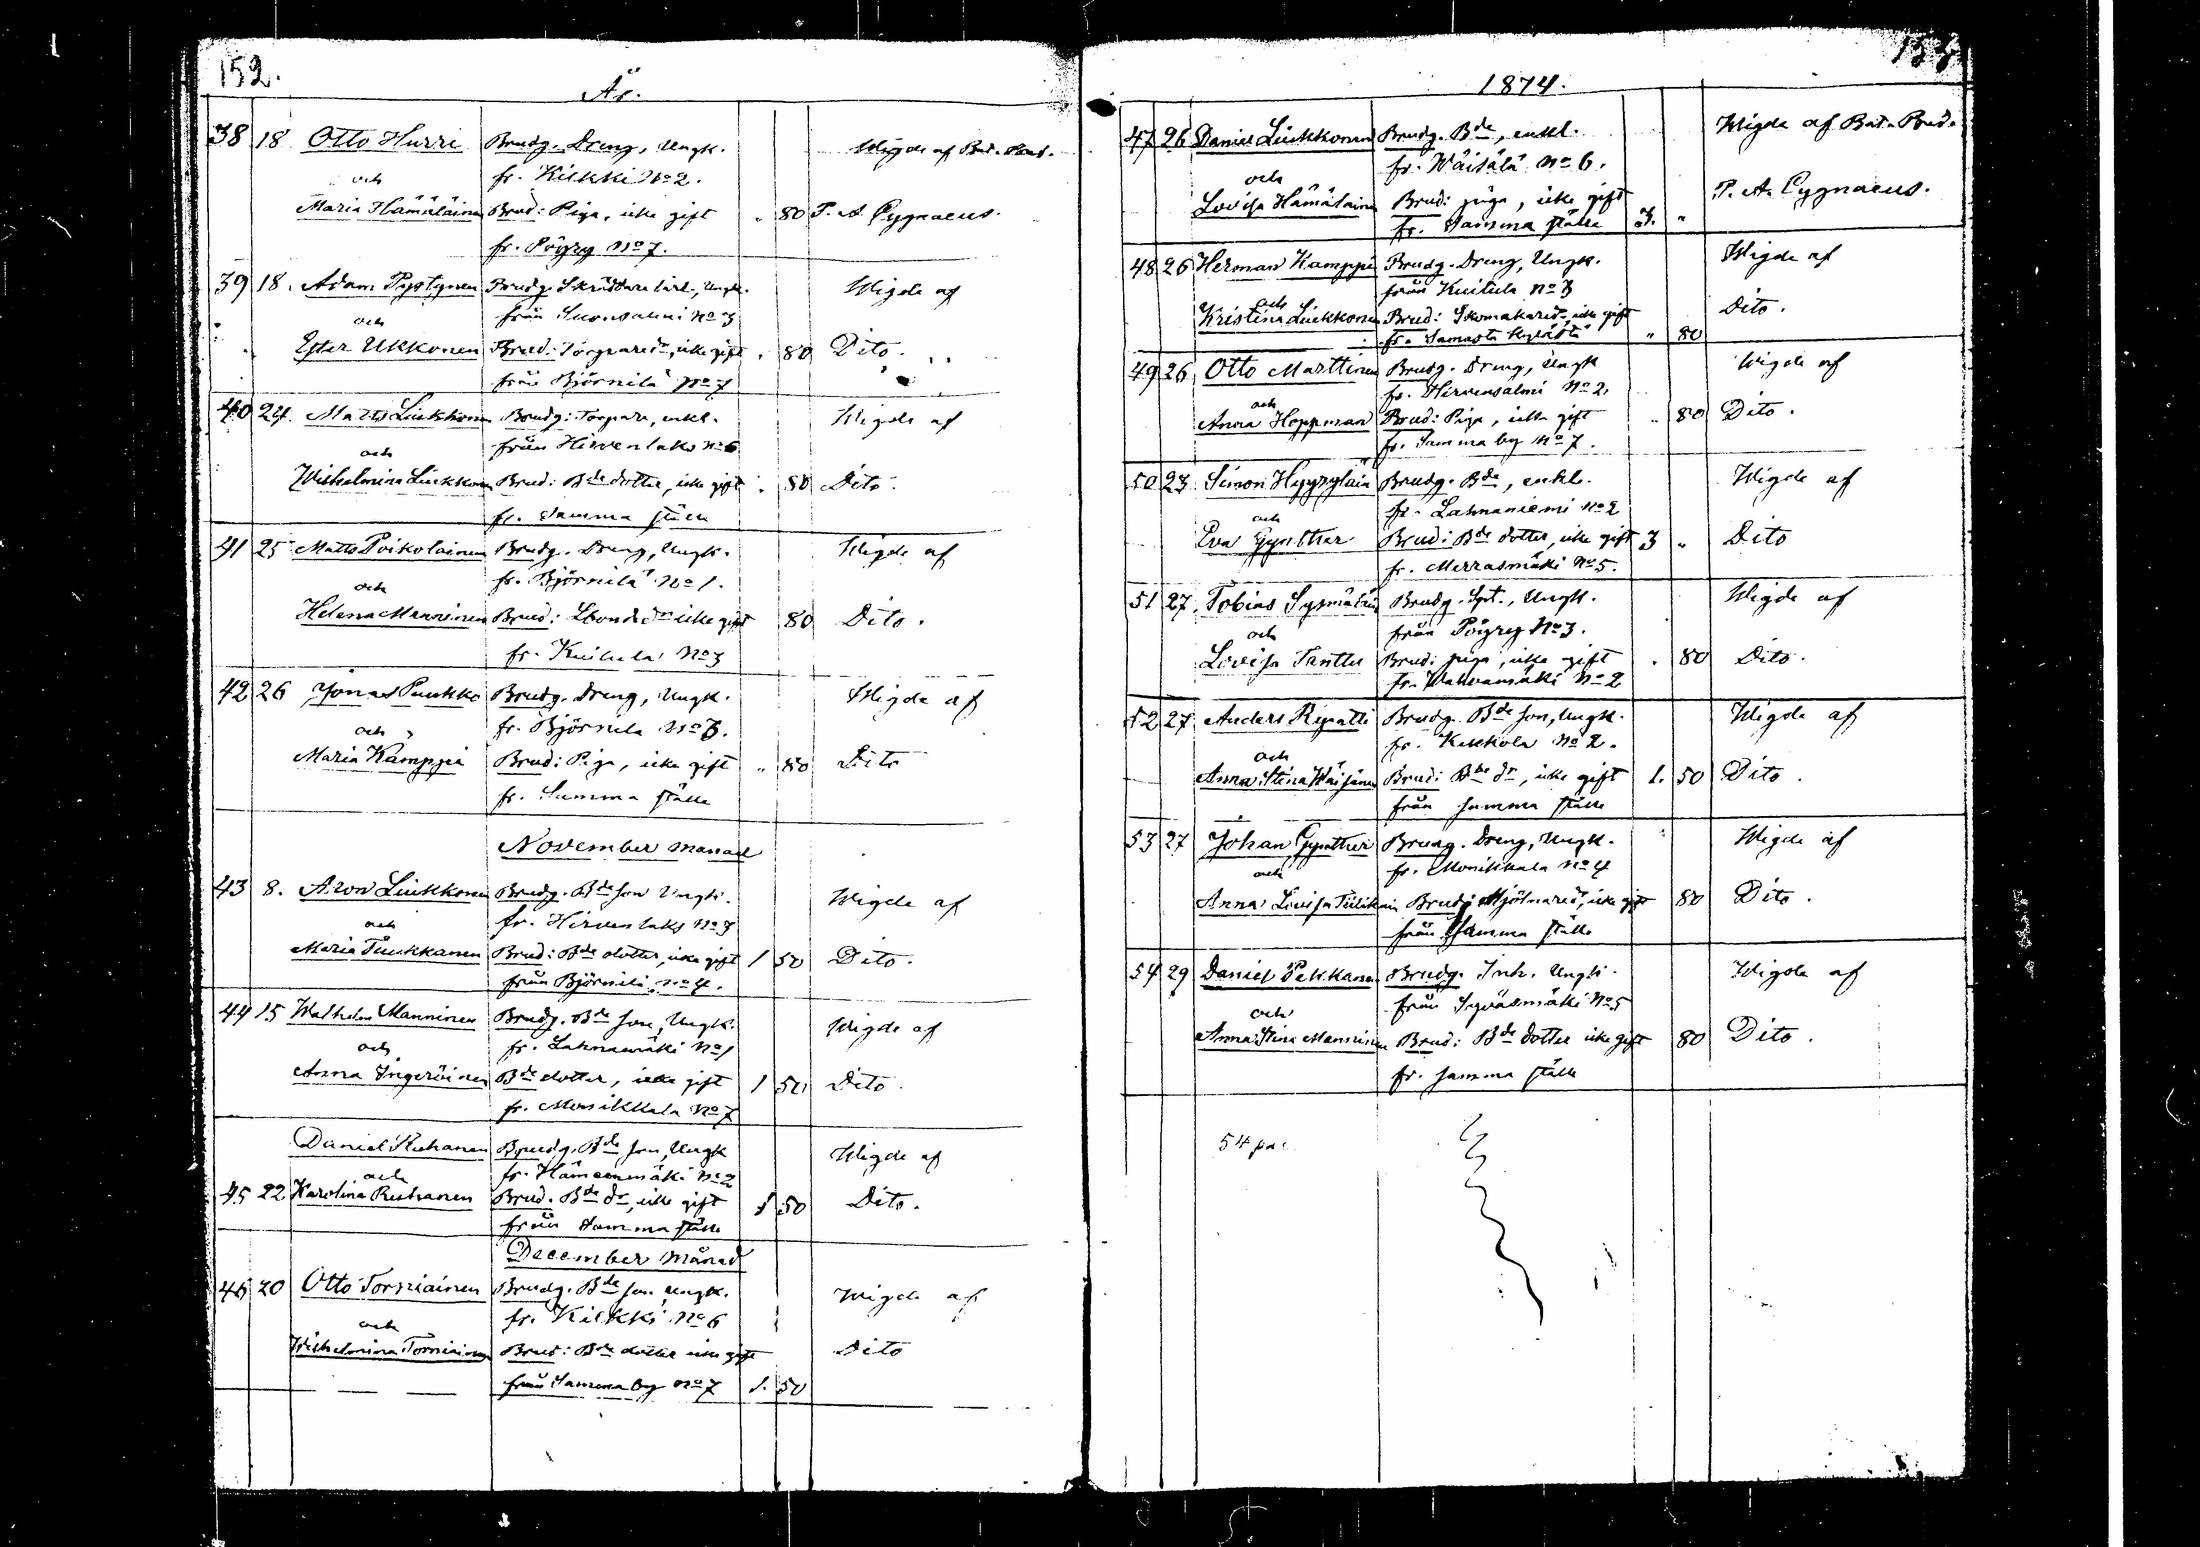 152.
År.
38 18 Otto Hurri Brudg. Dreng, Ungk. Wigde af Bat. Pred.
och fr. Kilkki No 2.
Maria Hämäläinen Brud: Piga, icke gift " 80 P. A. Cygnaeus.
fr. Pöyry No 7.
39 18. Adam Pystynen Brudg. Skräddare lärl., Ungk. Wigde af
och från Suonsalmi No 3
Ester Ukkonen Brud: Torpare dr, icke gift " 80 Dito.
från Björnilä No 7
40 24. Matts Liukkonen Brudg: Torpare, enkl. Wigde af
och från Hirvenlaks No 6
Wilhelmina Liukkonen Brud: Bde dotter, icke gift " 80 Dito.
fr. Samma ställe
41 25 Matts Poikolainen Brudg. Dreng, Ungk. Wigde af
och fr. Björnilä No 1.
Helena Manninen Brud: Lbonde dr icke gift 80 Dito.
fr. Kuitula No 3
42 26 Jonas Puukko Brudg. Dreng, Ungk. Wigde af
och fr. Björnilä No 3.
Maria Kämppi Brud: Piga, icke gift " 80 Dito
fr. Samma ställe
November månad
43 8. Aron Liukkonen Brudg. Bde son Ungk. Wigde af
och fr. Hirvenlaks No 3
Maria Tuukkanen Brud: Bde dotter, icke gift 1 50 Dito.
från Björnilä No 4.
44 15 Wilhelm Manninen Brudg. Bde son, Ungk. Wigde af
och fr. Lahnamäki No 1
Anna Ingeröinen Bde dotter, icke gift 1 50 Dito.
fr. Monikkala No 7
Daniel Rehanen Brudg. Bde son, Ungk Wigde af
och fr. Hämeenmäki No 2
45 22 Karolina Ruhanen Brud. Bde dr, icke gift 1 50 Dito.
från Samma ställe
December månad
46 20 Otto Torniainen Brudg. Bde son Ungk. Wigde af
och fr. Kilkki No 6
Wilhelmina Torniainen Brud: Bde dotter icke gift Dito
från Samma by No 7 1. 50
1874.
47 26 Daniel Liukkonen Brudg. Bde, enkl. Wigde af Bat. Pred.
och fr. Wäisälä No 6.
Lovisa Hämäläinen Brud: piga, icke gift P. A. Cygnaeus.
fr. Samma ställe 3. "
48 26 Herman Kamppi Brudg. Dreng, Ungk. Wigde af
och från Kuitula No 3
Kristina Liukkonen Brud: Skomakare dr, icke gift Dito.
fr. Samasta kylästä " 80
49 26 Otto Marttinen Brudg. Dreng, Ungk Wigde af
och fr. Hirvensalmi No 2.
Anna Hoppman Brud: Piga, icke gift " 80 Dito.
fr. Samma by No 7.
50 23 Simon Hyyryläin Brudg. Bde, enkl. Wigde af
och fr. Lahnaniemi No 2
Eva Gynther Brud: Bde dotter, icke gift 3 " Dito
fr. Merrasmäki No 5.
51 27. Tobias Sysmäläin Brudg. Spt., Ungk. Wigde af
och från Pöyry No 3.
Lovisa Tanttu Brud: piga, icke gift " 80 Dito.
fr. Wahvamäki No 2
52 27 Anders Ripatti Brudg. Bde son, Ungk. Wigde af
och fr. Kekkola No 2.
Anna Stina Wäisänen Brud: Bde dr, icke gift 1. 50 Dito.
från samma ställe
53 27 Johan Gynther Brudg. Dreng, Ungk. Wigde af
och fr. Monikkala No 4
Anna Lovisa Tiilikain Brud: Mjölnare dr, icke gift 80 Dito.
från Samma ställe
54 29 Daniel Pekkanen Brudg. Inh. Ungk. Wigde af
och från Syväsmäki No 5
Anna Stina Manninen Brud: Bde dotter icke gift 80 Dito.
fr. samma ställe
54 par